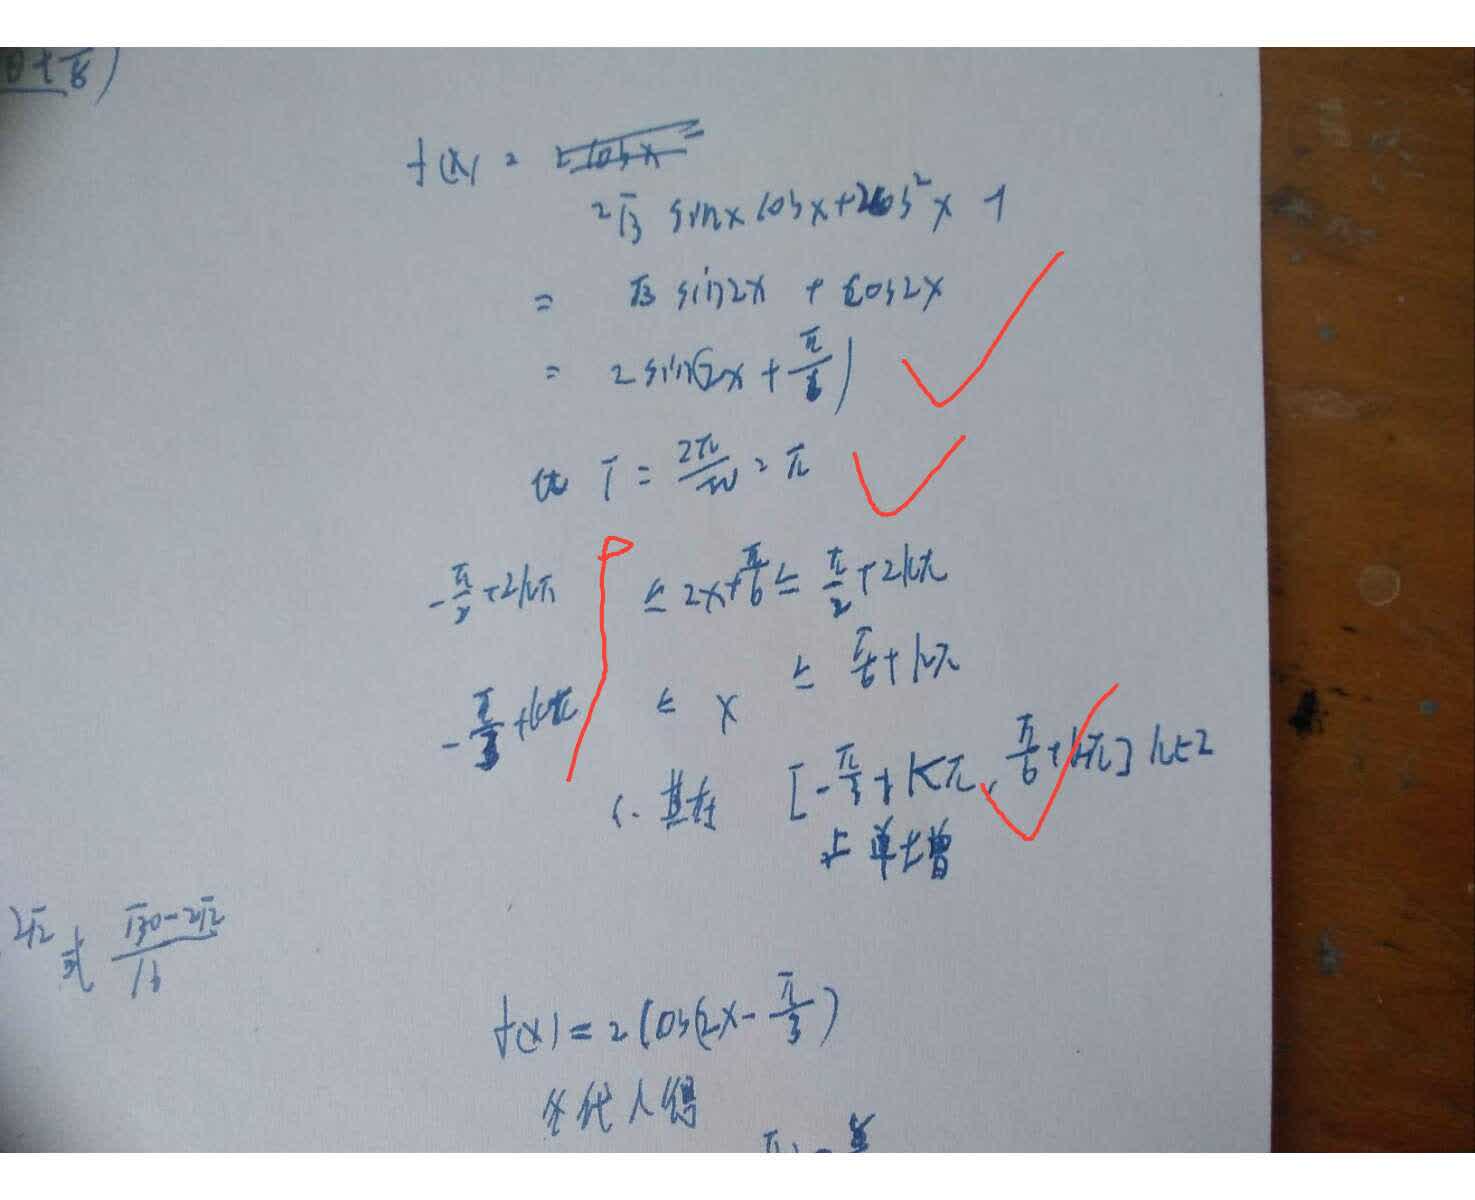 θ+π/8)
f(x) =
2√3 sinx cosx+2cos²x-1
= √3 sin2x + cos2x
= 2sin(2x+π/6)
故 T = 2π/w = π
-π/2+2kπ ≤ 2x+π/6 ≤ π/2+2kπ
-π/3+kπ ≤ x ≤ π/6+kπ
∴ 其在 [-π/3+kπ, π/6+kπ] k∈Z
上单增
2√2 或 (√30-2√2)/16
f(x)=2cos(2x-π/3)
代入得